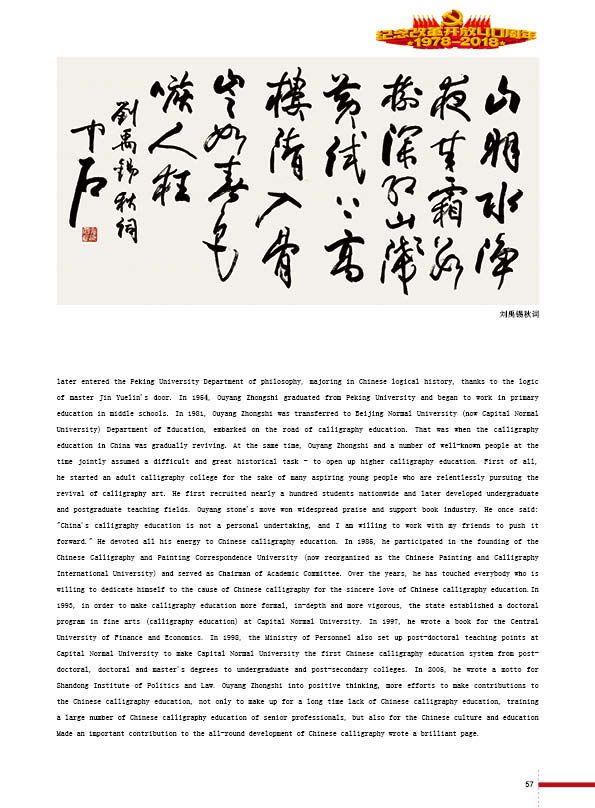 纪念改革开放40周年
★1978-2018★
山明水净
夜来霜数
树深红出浅
黄试上高
楼清入骨
岂如春色
嗾人狂
劉禹錫秋詞
中石
刘禹锡秋词
later entered the Peking University Department of philosophy, majoring in Chinese logical history, thanks to the logic
of master Jin Yuelin's door. In 1954, Ouyang Zhongshi graduated from Peking University and began to work in primary
education in middle schools. In 1981, Ouyang Zhongshi was transferred to Beijing Normal University (now Capital Normal
University) Department of Education, embarked on the road of calligraphy education. That was when the calligraphy
education in China was gradually reviving. At the same time, Ouyang Zhongshi and a number of well-known people at the
time jointly assumed a difficult and great historical task - to open up higher calligraphy education. First of all,
he started an adult calligraphy college for the sake of many aspiring young people who are relentlessly pursuing the
revival of calligraphy art. He first recruited nearly a hundred students nationwide and later developed undergraduate
and postgraduate teaching fields. Ouyang stone's move won widespread praise and support book industry. He once said:
"China's calligraphy education is not a personal undertaking, and I am willing to work with my friends to push it
forward." He devoted all his energy to Chinese calligraphy education. In 1985, he participated in the founding of the
Chinese Calligraphy and Painting Correspondence University (now reorganized as the Chinese Painting and Calligraphy
International University) and served as Chairman of Academic Committee. Over the years, he has touched everybody who is
willing to dedicate himself to the cause of Chinese calligraphy for the sincere love of Chinese calligraphy education.In
1993, in order to make calligraphy education more formal, in-depth and more vigorous, the state established a doctoral
program in fine arts (calligraphy education) at Capital Normal University. In 1997, he wrote a book for the Central
University of Finance and Economics. In 1998, the Ministry of Personnel also set up post-doctoral teaching points at
Capital Normal University to make Capital Normal University the first Chinese calligraphy education system from post-
doctoral, doctoral and master's degrees to undergraduate and post-secondary colleges. In 2005, he wrote a motto for
Shandong Institute of Politics and Law. Ouyang Zhongshi into positive thinking, more efforts to make contributions to
the Chinese calligraphy education, not only to make up for a long time lack of Chinese calligraphy education, training
a large number of Chinese calligraphy education of senior professionals, but also for the Chinese culture and education
Made an important contribution to the all-round development of Chinese calligraphy wrote a brilliant page.
57